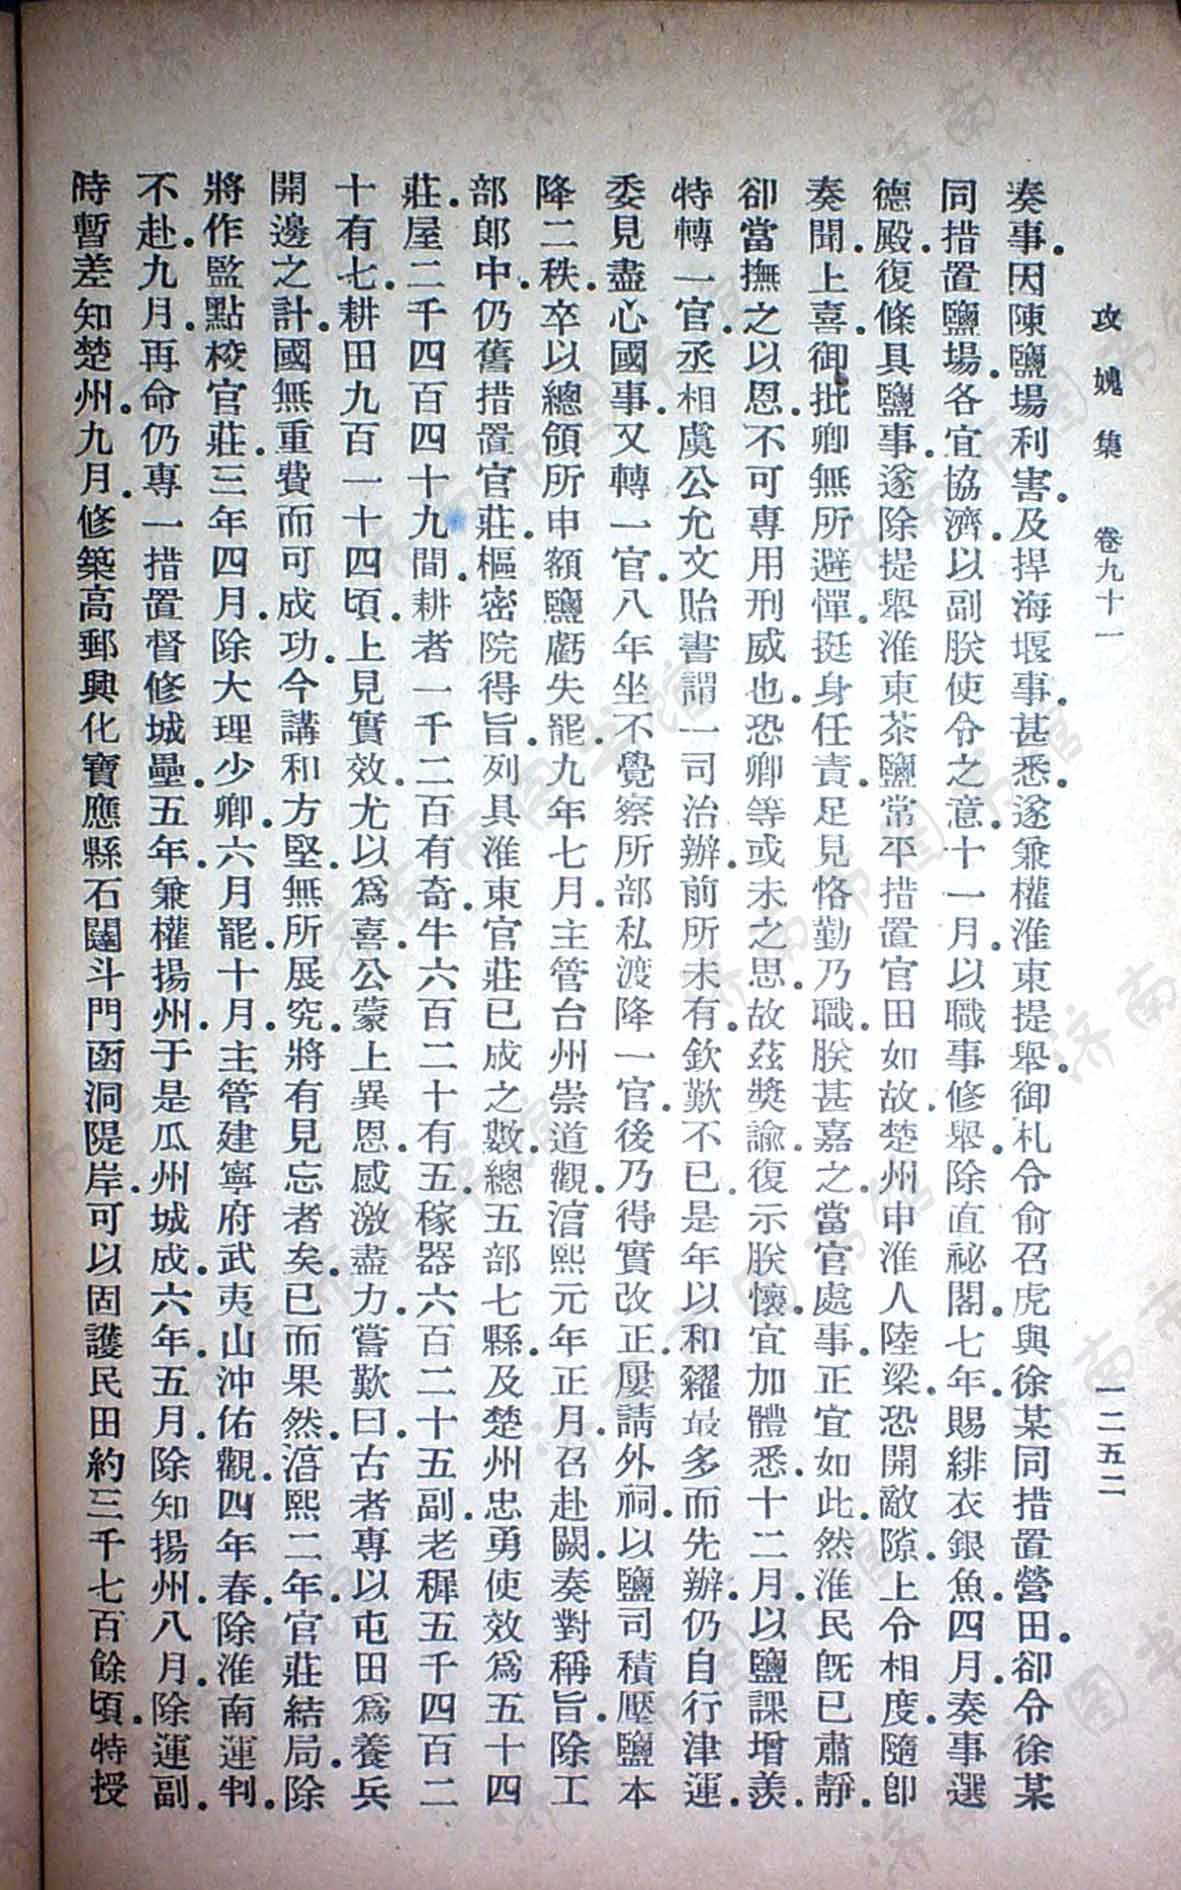 攻媿集 卷九十一 一二五二
奏事.因陳鹽場利害.及捍海堰事.甚悉.遂兼權淮東提舉.御札令俞召虎與徐某同措置營田.卻令徐某
同措置鹽場.各宜協濟.以副朕使令之意.十一月.以職事修舉.除直祕閣.七年.賜緋衣銀魚.四月.奏事選
德殿.復條具鹽事.遂除提舉淮東茶鹽常平措置官田如故.楚州申淮人陸梁.恐開敵隙.上令相度.隨卽
奏聞.上喜.御批卿無所避憚.挺身任責.足見恪勤乃職.朕甚嘉之.當官處事.正宜如此.然淮民旣已肅靜.
卻當撫之以恩.不可專用刑威也.恐卿等或未之思.故茲獎諭.復示朕懷.宜加體悉.十二月.以鹽課增羨.
特轉一官.丞相虞公允文貽書.謂一司治辦.前所未有.欽歎不已.是年以和糴最多而先辦.仍自行津運.
委見盡心國事.又轉一官.八年坐不覺察所部私渡降一官.後乃得實改正.屢請外祠.以鹽司積壓鹽本
降二秩.卒以總領所申額鹽虧失罷.九年七月.主管台州崇道觀.淳熙元年正月.召赴闕.奏對稱旨.除工
部郎中.仍舊措置官莊.樞密院得旨.列具淮東官莊已成之數.總五部七縣.及楚州忠勇使效爲五十四
莊.屋二千四百四十九間.耕者一千二百有奇.牛六百二十有五.稼器六百二十五副.老穉五千四百二
十有七.耕田九百一十四頃.上見實效.尤以爲喜.公蒙上異恩.感激盡力.嘗歎曰.古者專以屯田爲養兵
開邊之計.國無重費而可成功.今講和方堅.無所展究.將有見忘者矣.已而果然.淳熙二年.官莊結局.除
將作監點檢官莊.三年四月.除大理少卿.六月罷.十月.主管建寧府武夷山沖佑觀.四年春.除淮南運判.
不赴.九月.再命仍專一措置督修城壘.五年.兼權揚州.于是瓜州城成.六年.五月.除知揚州.八月.除運副.
時暫差知楚州.九月.修築高郵興化寶應縣石䃮斗門函洞隄岸.可以固護民田約三千七百餘頃.特授